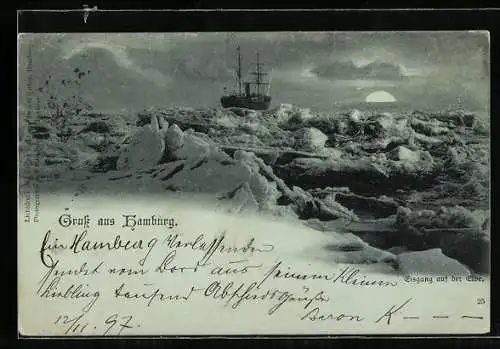 Gruß aus Hamburg.
Eisgang auf der Elbe.
Ein Hamburg Verlassender
sendet vom Bord aus seinem kleinen
Liebling tausend Abschiedsgrüße
12/11 97.
Baron K — — —
25